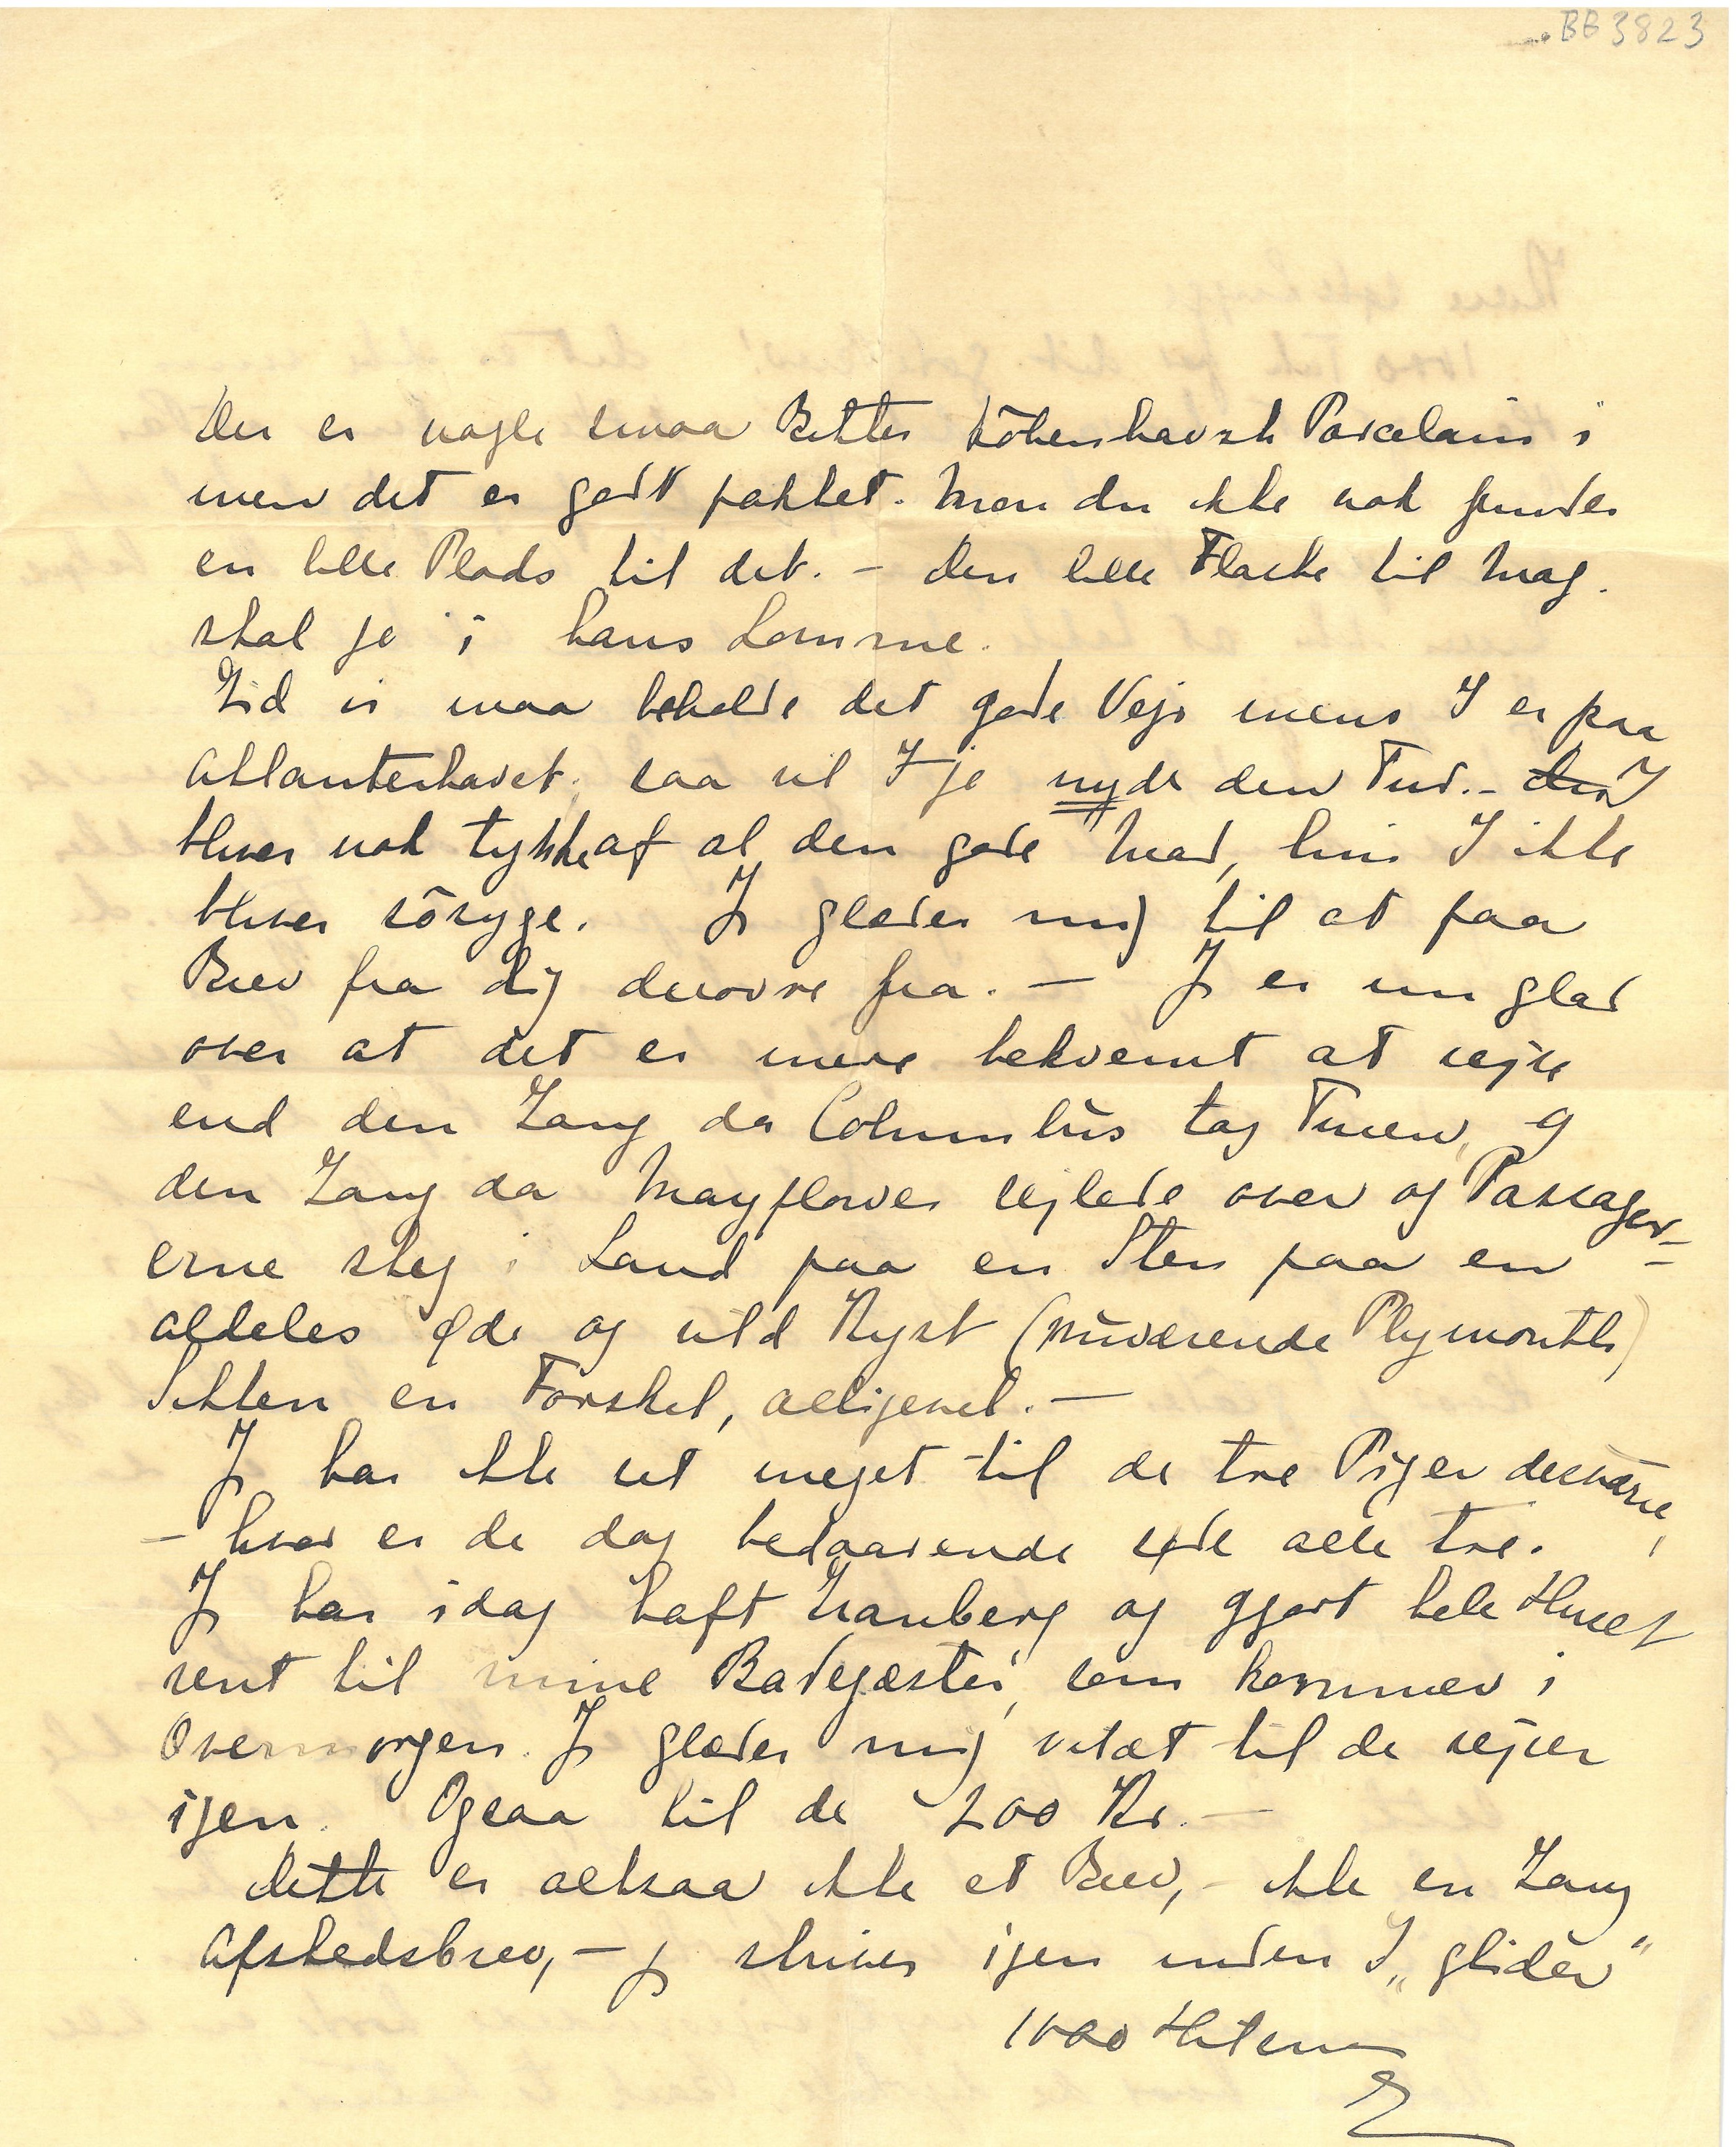 BB 3823
Der er nogle smaa Bitter Köbenhavnsk Porcelain i
men det er godt pakket. Mon du ikke nok finder
en lille Plads til det. – Den lille Flaske til Mag.
skal jo i hans Lomme.
Gid vi maa beholde det gode Vejr mens I er paa
Atlanterhavet, saa vil I jo nyde den Tur. – den I
bliver nok tykke af al den gode Mad, hvis I ikke
bliver sösyge. Jeg glæder mig til at faa
Brev fra dig derovre fra. – Jeg er nu glad
over at det er mere bekvemt at rejse
end den Gang da Columbus tog Turen, og
den Gang da Mayflower sejlede over og Passager-
erne steg i Land paa en Sten paa en –
aldeles øde og vild Kyst (nuværende Plymouth)
Sikken en Forskel, alligevel. –
Jeg har ikke set meget til de tre Piger desværre,
– hvor er de dog bedaarende søde alle tre.
Jeg har idag haft Manberg og gjort hele Huset
rent til mine Badegæster, som kommer i
Overmorgen. Jeg glæder mig vildt til de rejser
igen. Ogsaa til de 200 Kr. –
Dette er altsaa ikke et Brev, – ikke en Gang
Afskedsbrev, – jeg skriver igen inden I „glider"
1000 Hilsner
E